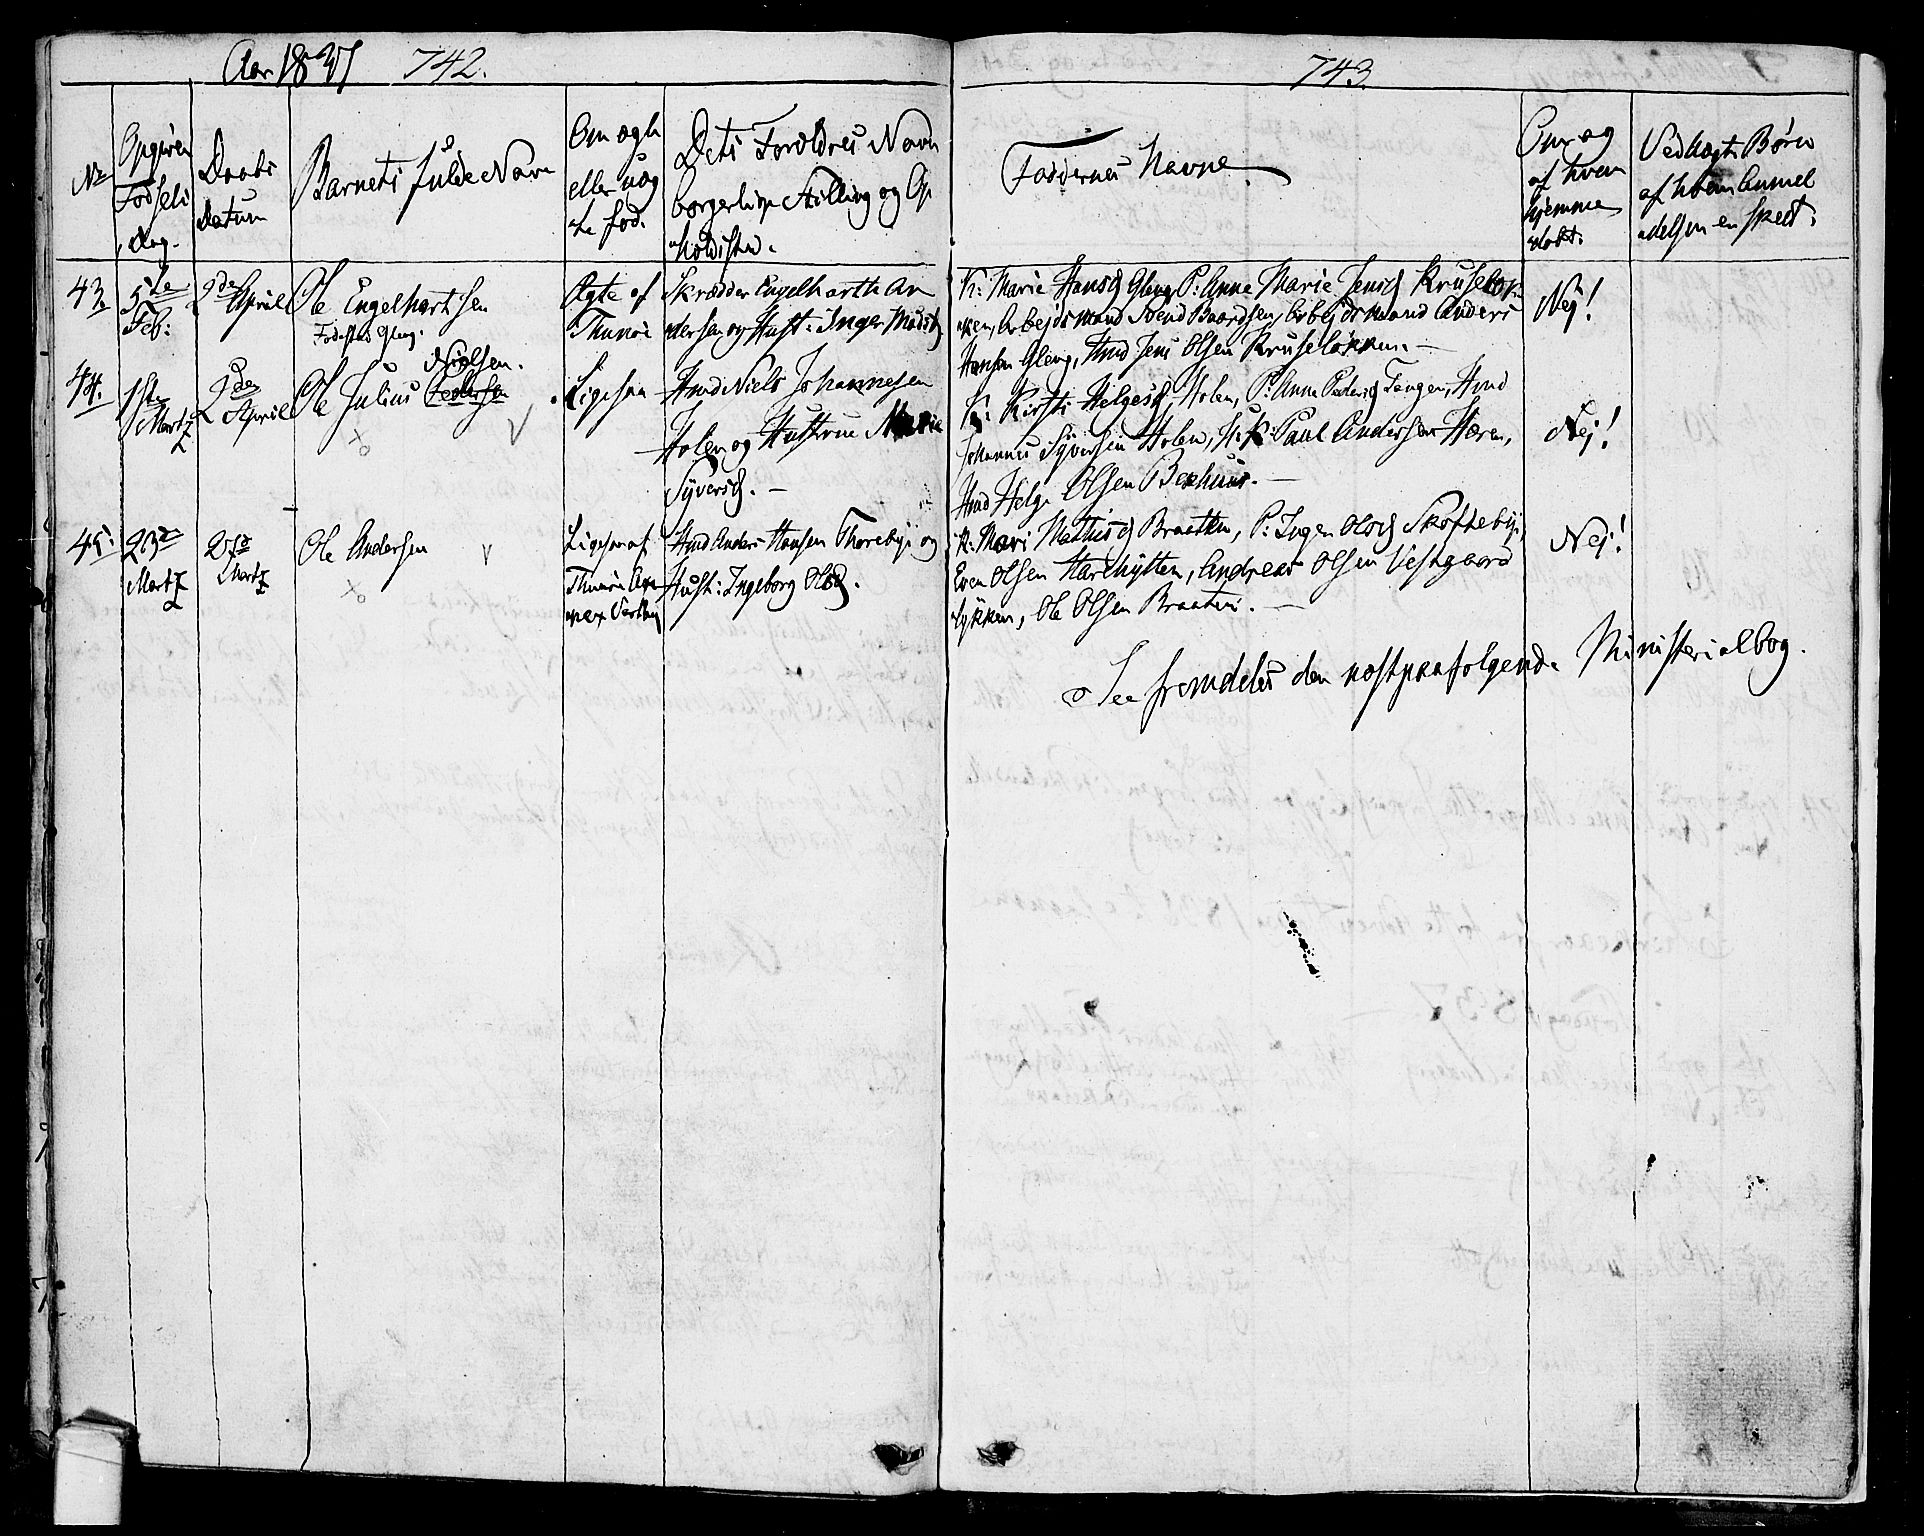 Aar 1837 742.
743.
No
Opgiven
Fødsels
dag.
Daabs
datum
Barnets fulde Navn
Om ægte
eller uæg
te fød.
Dets Forældres Navn
borgerlige Stilling og Op
holdssted.
Faddernes Navne
Om og
af hvem
hjemme
døbt.
Ved uægte Børn
af hvem Anmel
delsen er skeet.
43.
5te
Feb:
2den
April
Ole Engelhartsen
Fødested Gleng.
Ægte af
Thunøe
Skrædder Engelharth An
dersen og Hust: Inger Madsd
K: Marie Hansd Gleng P: Anne Marie Jensd Kruseløk
ken, Arbejdsmand Svend Baardsen, Arbejdsmand Anders
Hansen Gleng, Hmd Jens Olsen Kruseløkken. —
Nej!
44.
1ste
Martz
2den
April
Nielsen.
Ole Julius Pedersen
Ligesaa
Hmd Niels Johannesen
Holen og Hustrue Marie
Syversd. —
K: Kirsti Helgesd Holen, P: Anne Pedersd Tangen, Hmd
Johannes Syversen Holen, Paul Andersen Hæren,
Hmd Helge Olsen Bexhuus. —
Nej!
45.
23de
Martz
27de
Martz
Ole Andersen
Ligesaa af
Thunøe Ann
nex Varteig
Hmd Anders Hansen Thorebye og
Hust: Ingeborg Olsd.
K: Mari Mathisd Braatten, P: Inger Olsd Skoftebye,
Even Olsen Harehytten, Andreas Olsen Vestgaard
løkken, Ole Olsen Braaten. —
Nej!
See fremdeles den næstpaafølgende Ministerialbog.